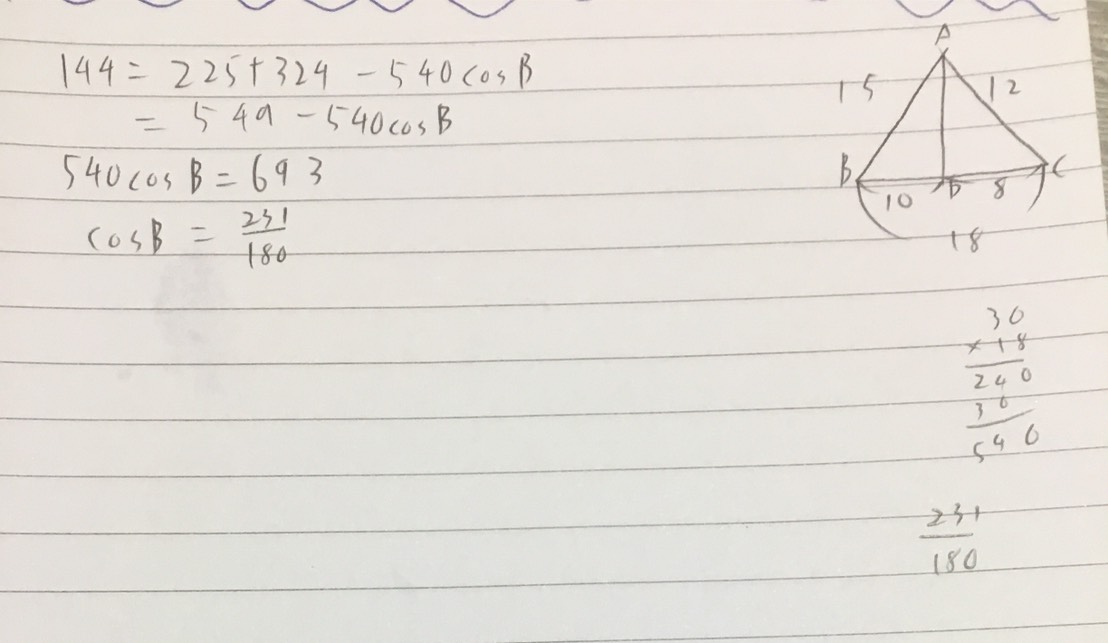 144 = 225 + 324 - 540 cos B
= 549 - 540 cos B
540 cos B = 693
cos B = 231/180
A
15
12
B
D
C
10
8
18
30
× 18
240
30
540
231/180